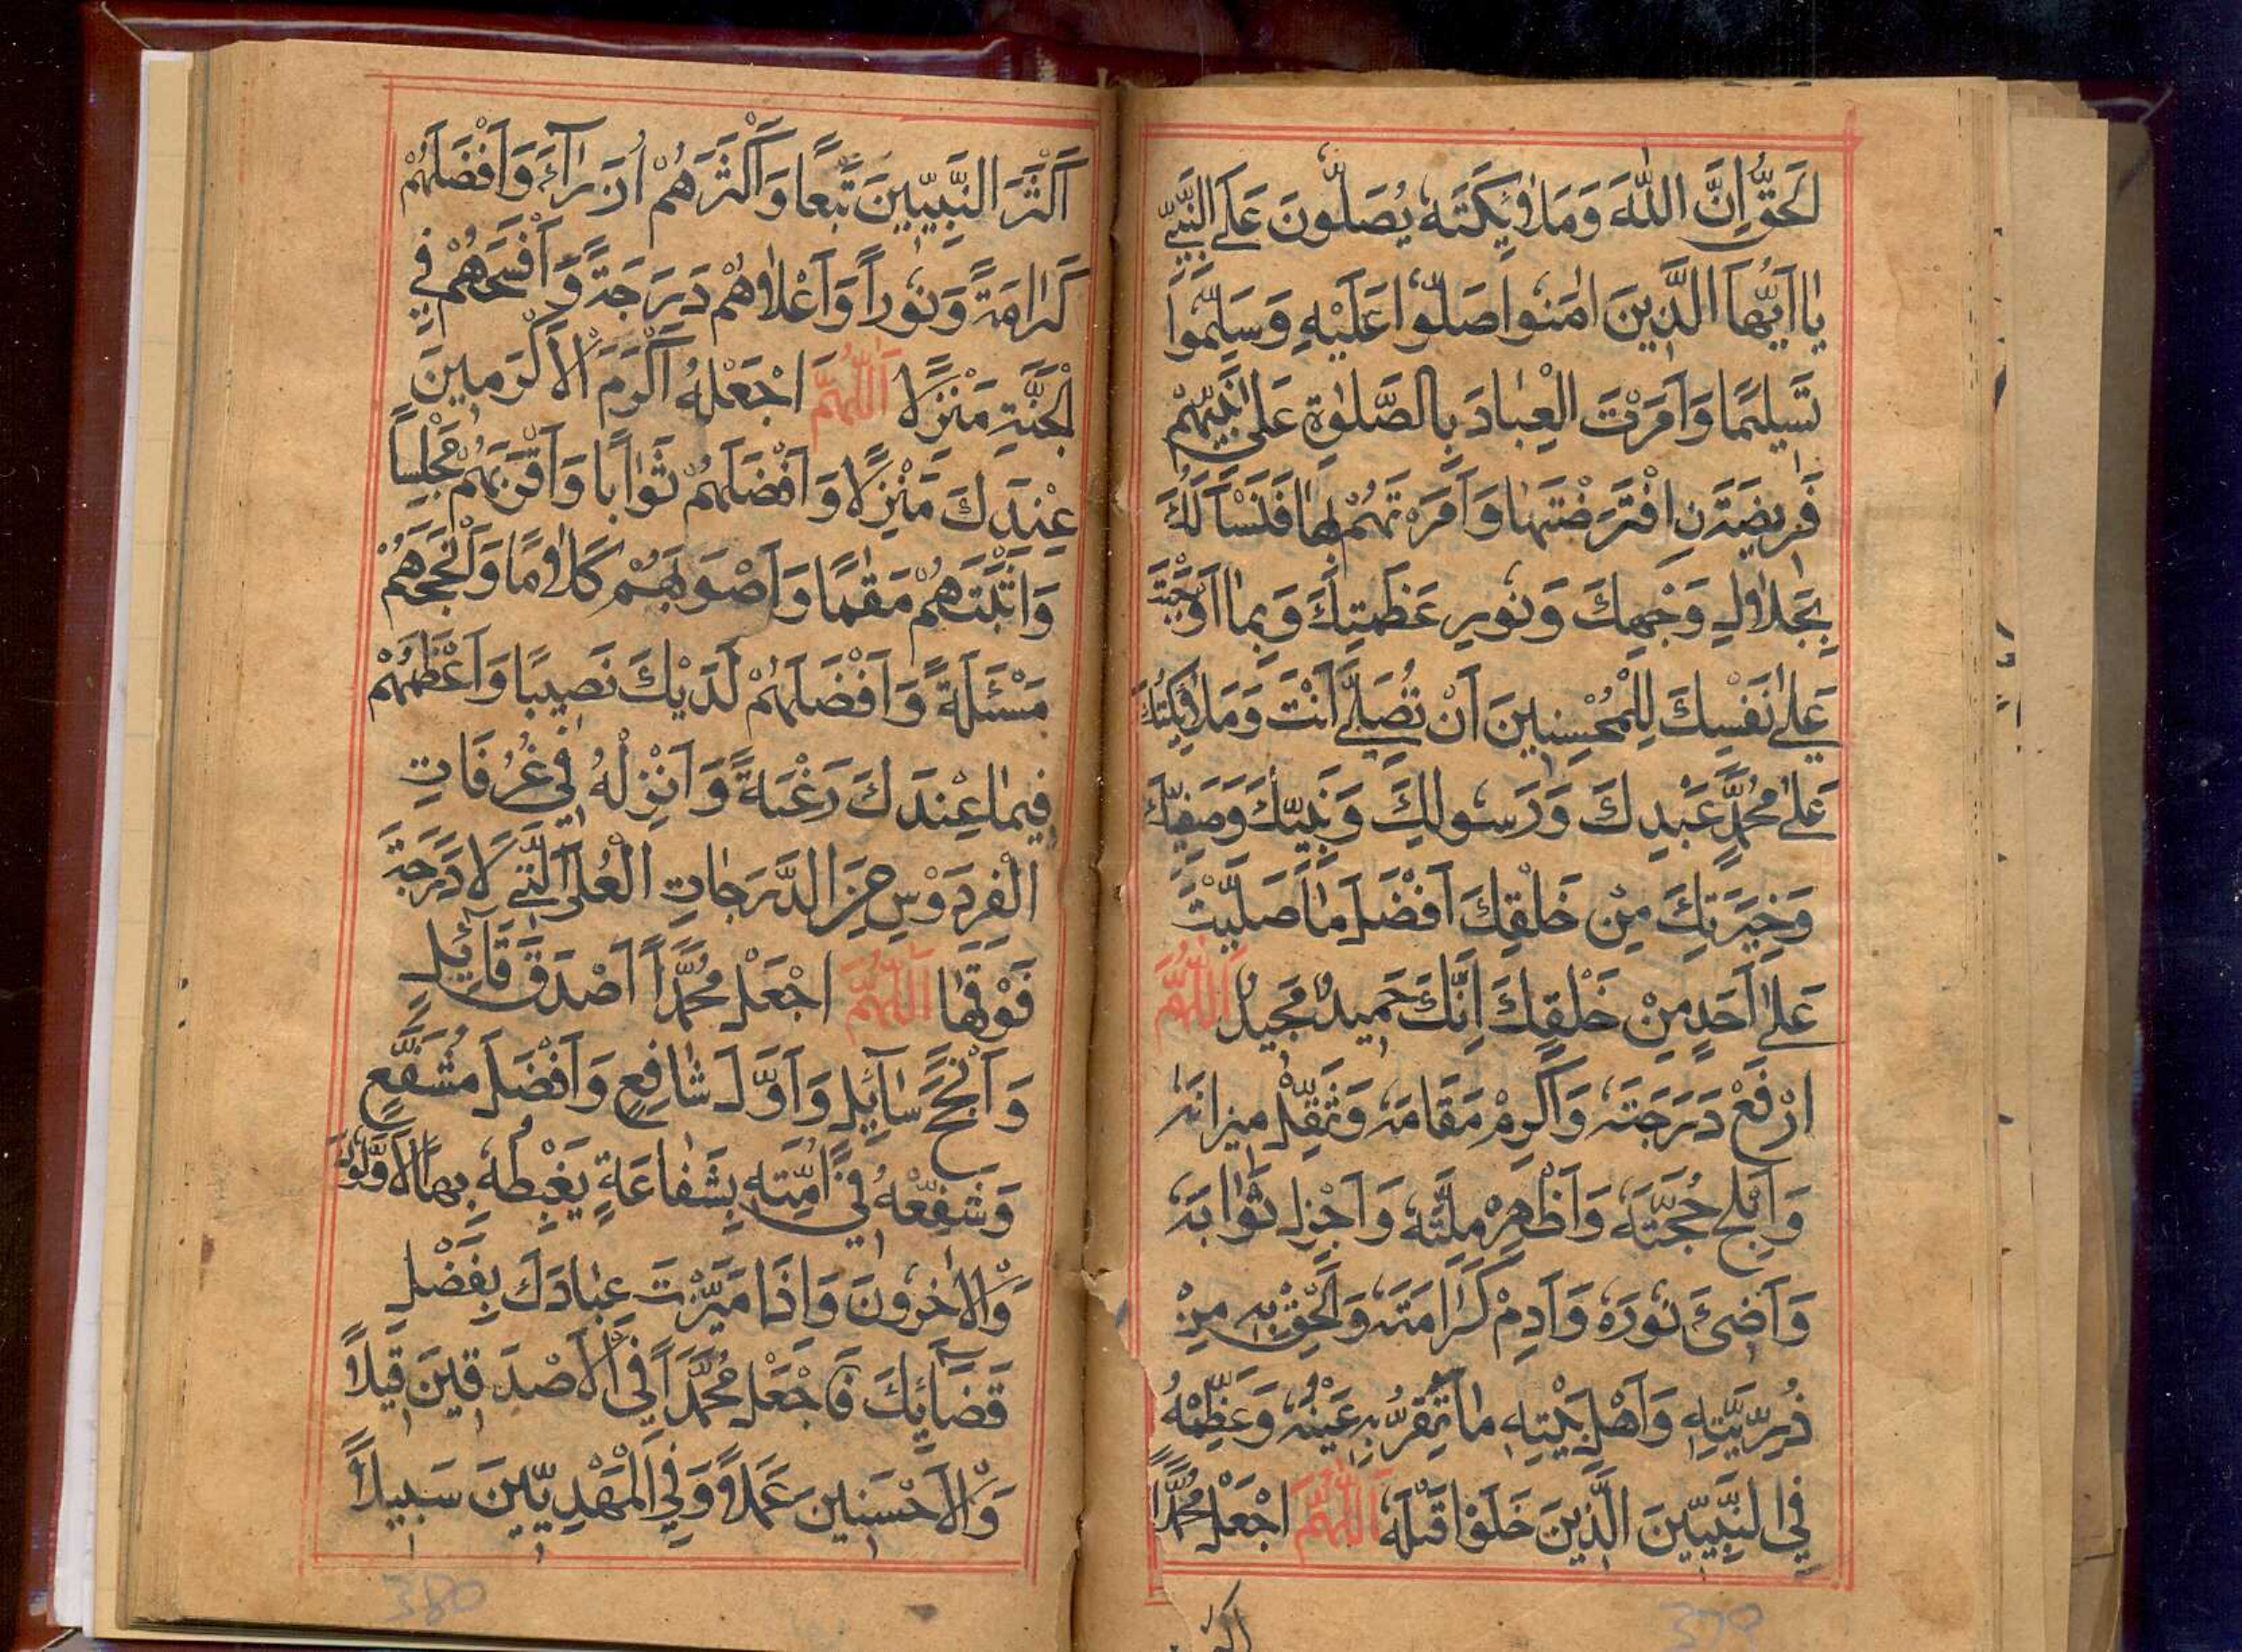 لْحَقُّ إِنَّ اللّٰهَ وَمَلَاۤئِكَتَهُ يُصَلُّونَ عَلَى النَّبِيِّ
يَا أَيُّهَا الَّذِينَ اٰمَنُوا صَلُّوا عَلَيْهِ وَسَلِّمُوا
تَسْلِيمًا وَاَمَرْتَ الْعِبَادَ بِالصَّلٰوةِ عَلٰى نَبِيِّهِمْ
فَرِيضَةً نِ افْتَرَضْتَهَا وَاَمَرْتَهُمْ بِهَا فَنَسْاَلُكَ
بِجَلَالِ وَجْهِكَ وَنُورِ عَظَمَتِكَ وَبِمَا اَوْجَبْتَ
عَلٰى نَفْسِكَ لِلْمُحْسِنِينَ اَنْ تُصَلِّيَ اَنْتَ وَمَلَاۤئِكَتُكَ
عَلٰى مُحَمَّدٍ عَبْدِكَ وَرَسُولِكَ وَنَبِيِّكَ وَصَفِيِّكَ
وَخِيَرَتِكَ مِنْ خَلْقِكَ اَفْضَلَ مَا صَلَّيْتَ
عَلٰى اَحَدٍ مِنْ خَلْقِكَ اِنَّكَ حَمِيدٌ مَجِيدٌ اَللّٰهُمَّ
ارْفَعْ دَرَجَتَهُ وَاَكْرِمْ مَقَامَهُ وَثَقِّلْ مِيزَانَهُ
وَاَبْلِجْ حُجَّتَهُ وَاَظْهِرْ مِلَّتَهُ وَاَجْزِلْ ثَوَابَهُ
وَاَضِئْ نُورَهُ وَاَدِمْ كَرَامَتَهُ وَاَلْحِقْ بِهِ مِنْ
ذُرِّيَّتِهِ وَاَهْلِ بَيْتِهِ مَا تَقَرُّ بِهِ عَيْنُهُ وَعَظِّمْهُ
فِي النَّبِيِّينَ الَّذِينَ خَلَوْا قَبْلَهُ اَللّٰهُمَّ اجْعَلْ مُحَمَّدًا
اكثر
379
اَكْثَرَ النَّبِيِّينَ تَبَعًا وَاَكْثَرَهُمْ اُزَرَاۤءَ وَاَفْضَلَهُمْ
كَرَامَةً وَنُورًا وَاَعْلَاهُمْ دَرَجَةً وَاَفْسَحَهُمْ فِي
الْجَنَّةِ مَنْزِلًا اَللّٰهُمَّ اجْعَلْهُ اَكْرَمَ الْاَكْرَمِينَ
عِنْدَكَ مَنْزِلًا وَاَفْضَلَهُمْ ثَوَابًا وَاَقْرَبَهُمْ مَجْلِسًا
وَاَثْبَتَهُمْ مَقَامًا وَاَصْوَبَهُمْ كَلَامًا وَاَنْجَحَهُمْ
مَسْئَلَةً وَاَفْضَلَهُمْ لَدَيْكَ نَصِيبًا وَاَعْظَمَهُمْ
فِيمَا عِنْدَكَ رَغْبَةً وَاَنْزِلْهُ فِي غُرُفَاتِ
الْفِرْدَوْسِ مِنَ الدَّرَجَاتِ الْعُلٰى الَّتِي لَا دَرَجَةَ
فَوْقَهَا اَللّٰهُمَّ اجْعَلْ مُحَمَّدًا اَصْدَقَ قَاۤئِلٍ
وَاَنْجَحَ سَاۤئِلٍ وَاَوَّلَ شَافِعٍ وَاَفْضَلَ مُشَفَّعٍ
وَشَفِّعْهُ فِي اُمَّتِهِ بِشَفَاعَةٍ يَغْبِطُهُ بِهَا الْاَوَّلُونَ
وَالْاٰخِرُونَ وَاِذَا مَيَّزْتَ عِبَادَكَ بِفَضْلِ
قَضَاۤئِكَ فَاجْعَلْ مُحَمَّدًا فِي الْاَصْدَقِينَ قِيلًا
وَالْاَحْسَنِينَ عَمَلًا وَفِي الْمَهْدِيِّينَ سَبِيلًا
380